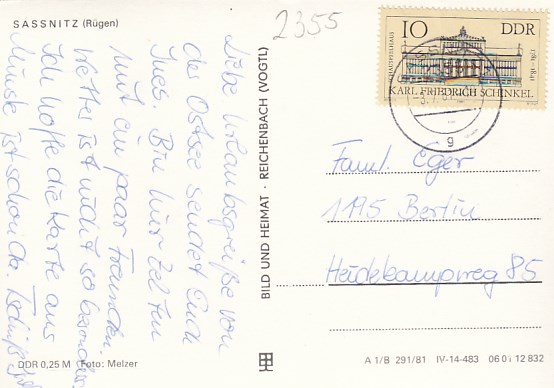 SASSNITZ (Rügen)
2355
Liebe Urlaubsgrüße von
der Ostsee sendet Euch
Ines. Bin hier Zelten
mit ein paar Freunden.
Wetter ist nicht so besonders.
Ich hoffe die Karte aus
ist schon da. Tschüß
DDR 0,25 M Foto: Melzer
BILD UND HEIMAT · REICHENBACH (VOGTL)
10 DDR
SCHAUSPIELHAUS
1781-1841
KARL FRIEDRICH SCHINKEL
g
Famil. Eger
1195 Berlin
Heidekampweg 85
A 1/B 291/81 IV-14-483 06 0 i 12 832